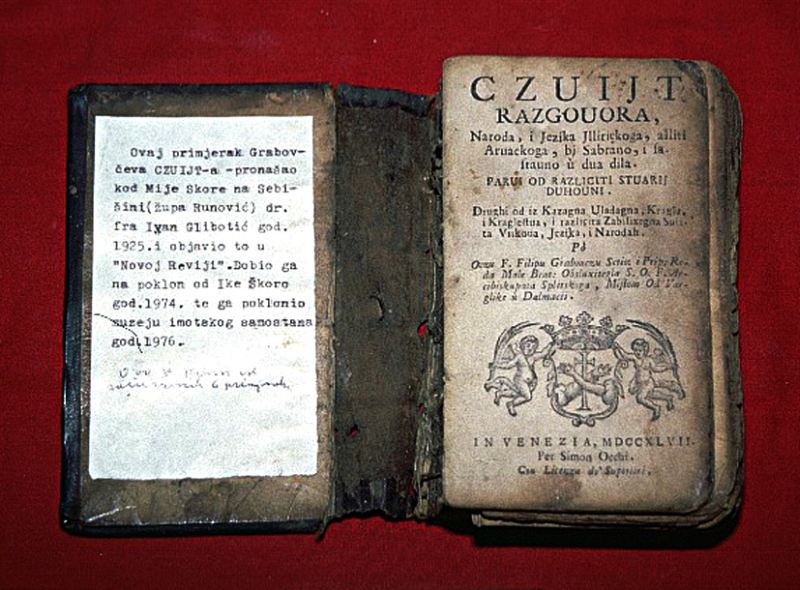 Ovaj primjerak Grabov-
čeva CZUIJT-a -pronašao
kod Mije Škore na Sebi-
šini(župa Runović) dr.
fra Ivan Glibotić god.
1925.i objavio to u
"Novoj Reviji".Dobio ga
na poklon od Ike Škoro
god.1974. te ga poklonio
muzeju imotskog samostana
god.1976.
CZUIJT
RAZGOUORA,
Naroda, i Jezika Jllirickoga, alliti
Aruackoga, bi Sabrano, i sa-
stauno ù dua dila.
PARUI OD RAZLICITI STUARIJ
DUHOUNI.
Drughi od iz Kazagna Uladagna, Kraglia,
i Kraglestua, i razlicita Zabilixegna
Vnkoua, Jezika, i Narodah.
Po
Oczu F. Filipu
Male Brat:
Od Var-
glike ù Dalmacii.
IN VENEZIA, MDCCXLVII.
Per Simon Occhi.
Con Licenza de' Superiori.